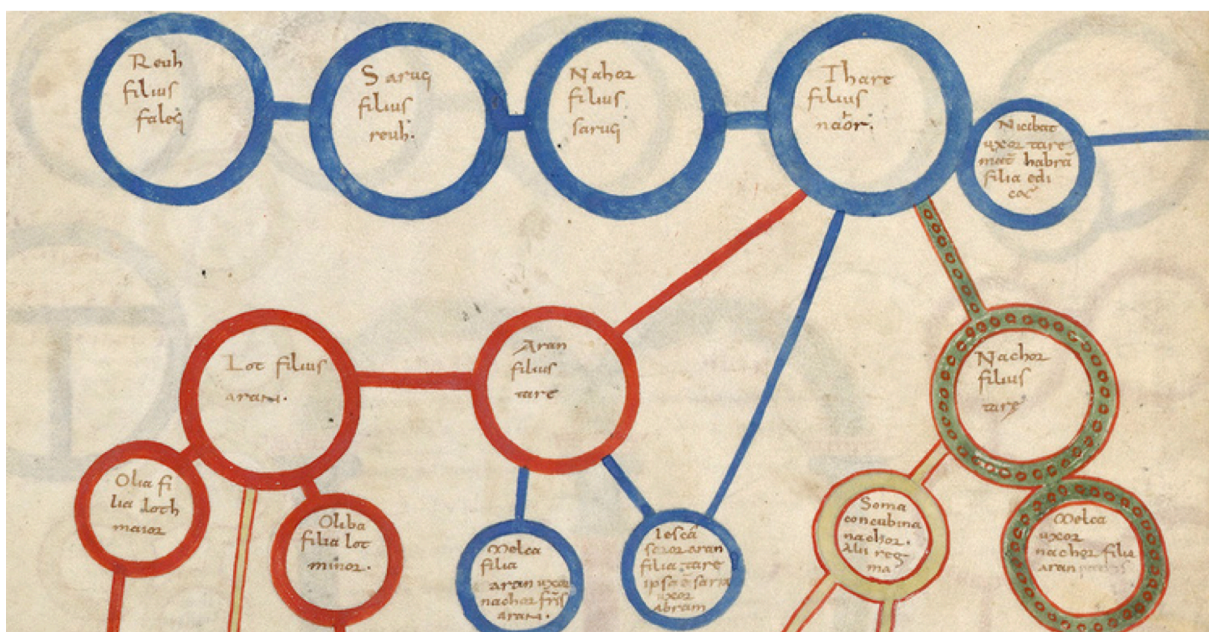 Reuh
filius
faleq
Saruq
filius
reuh.
Nahor
filius
saruq
Thare
filius
naor.
uxor tare
mat habrā
filia edi
Lot filius
aran.
Aran
filius
tare
Nachor
filius
tare
Olia fi
lia loth
maior
Oliba
filia lot
minor.
Melca
filia
aran uxor
nachor fr̄is
aran.
Iescā
soror aran
filia tare
ipsa ē sara
uxor
abram
Soma
concubina
nachor.
Alii reg
ma
Melca
uxor
nachor filia
aran